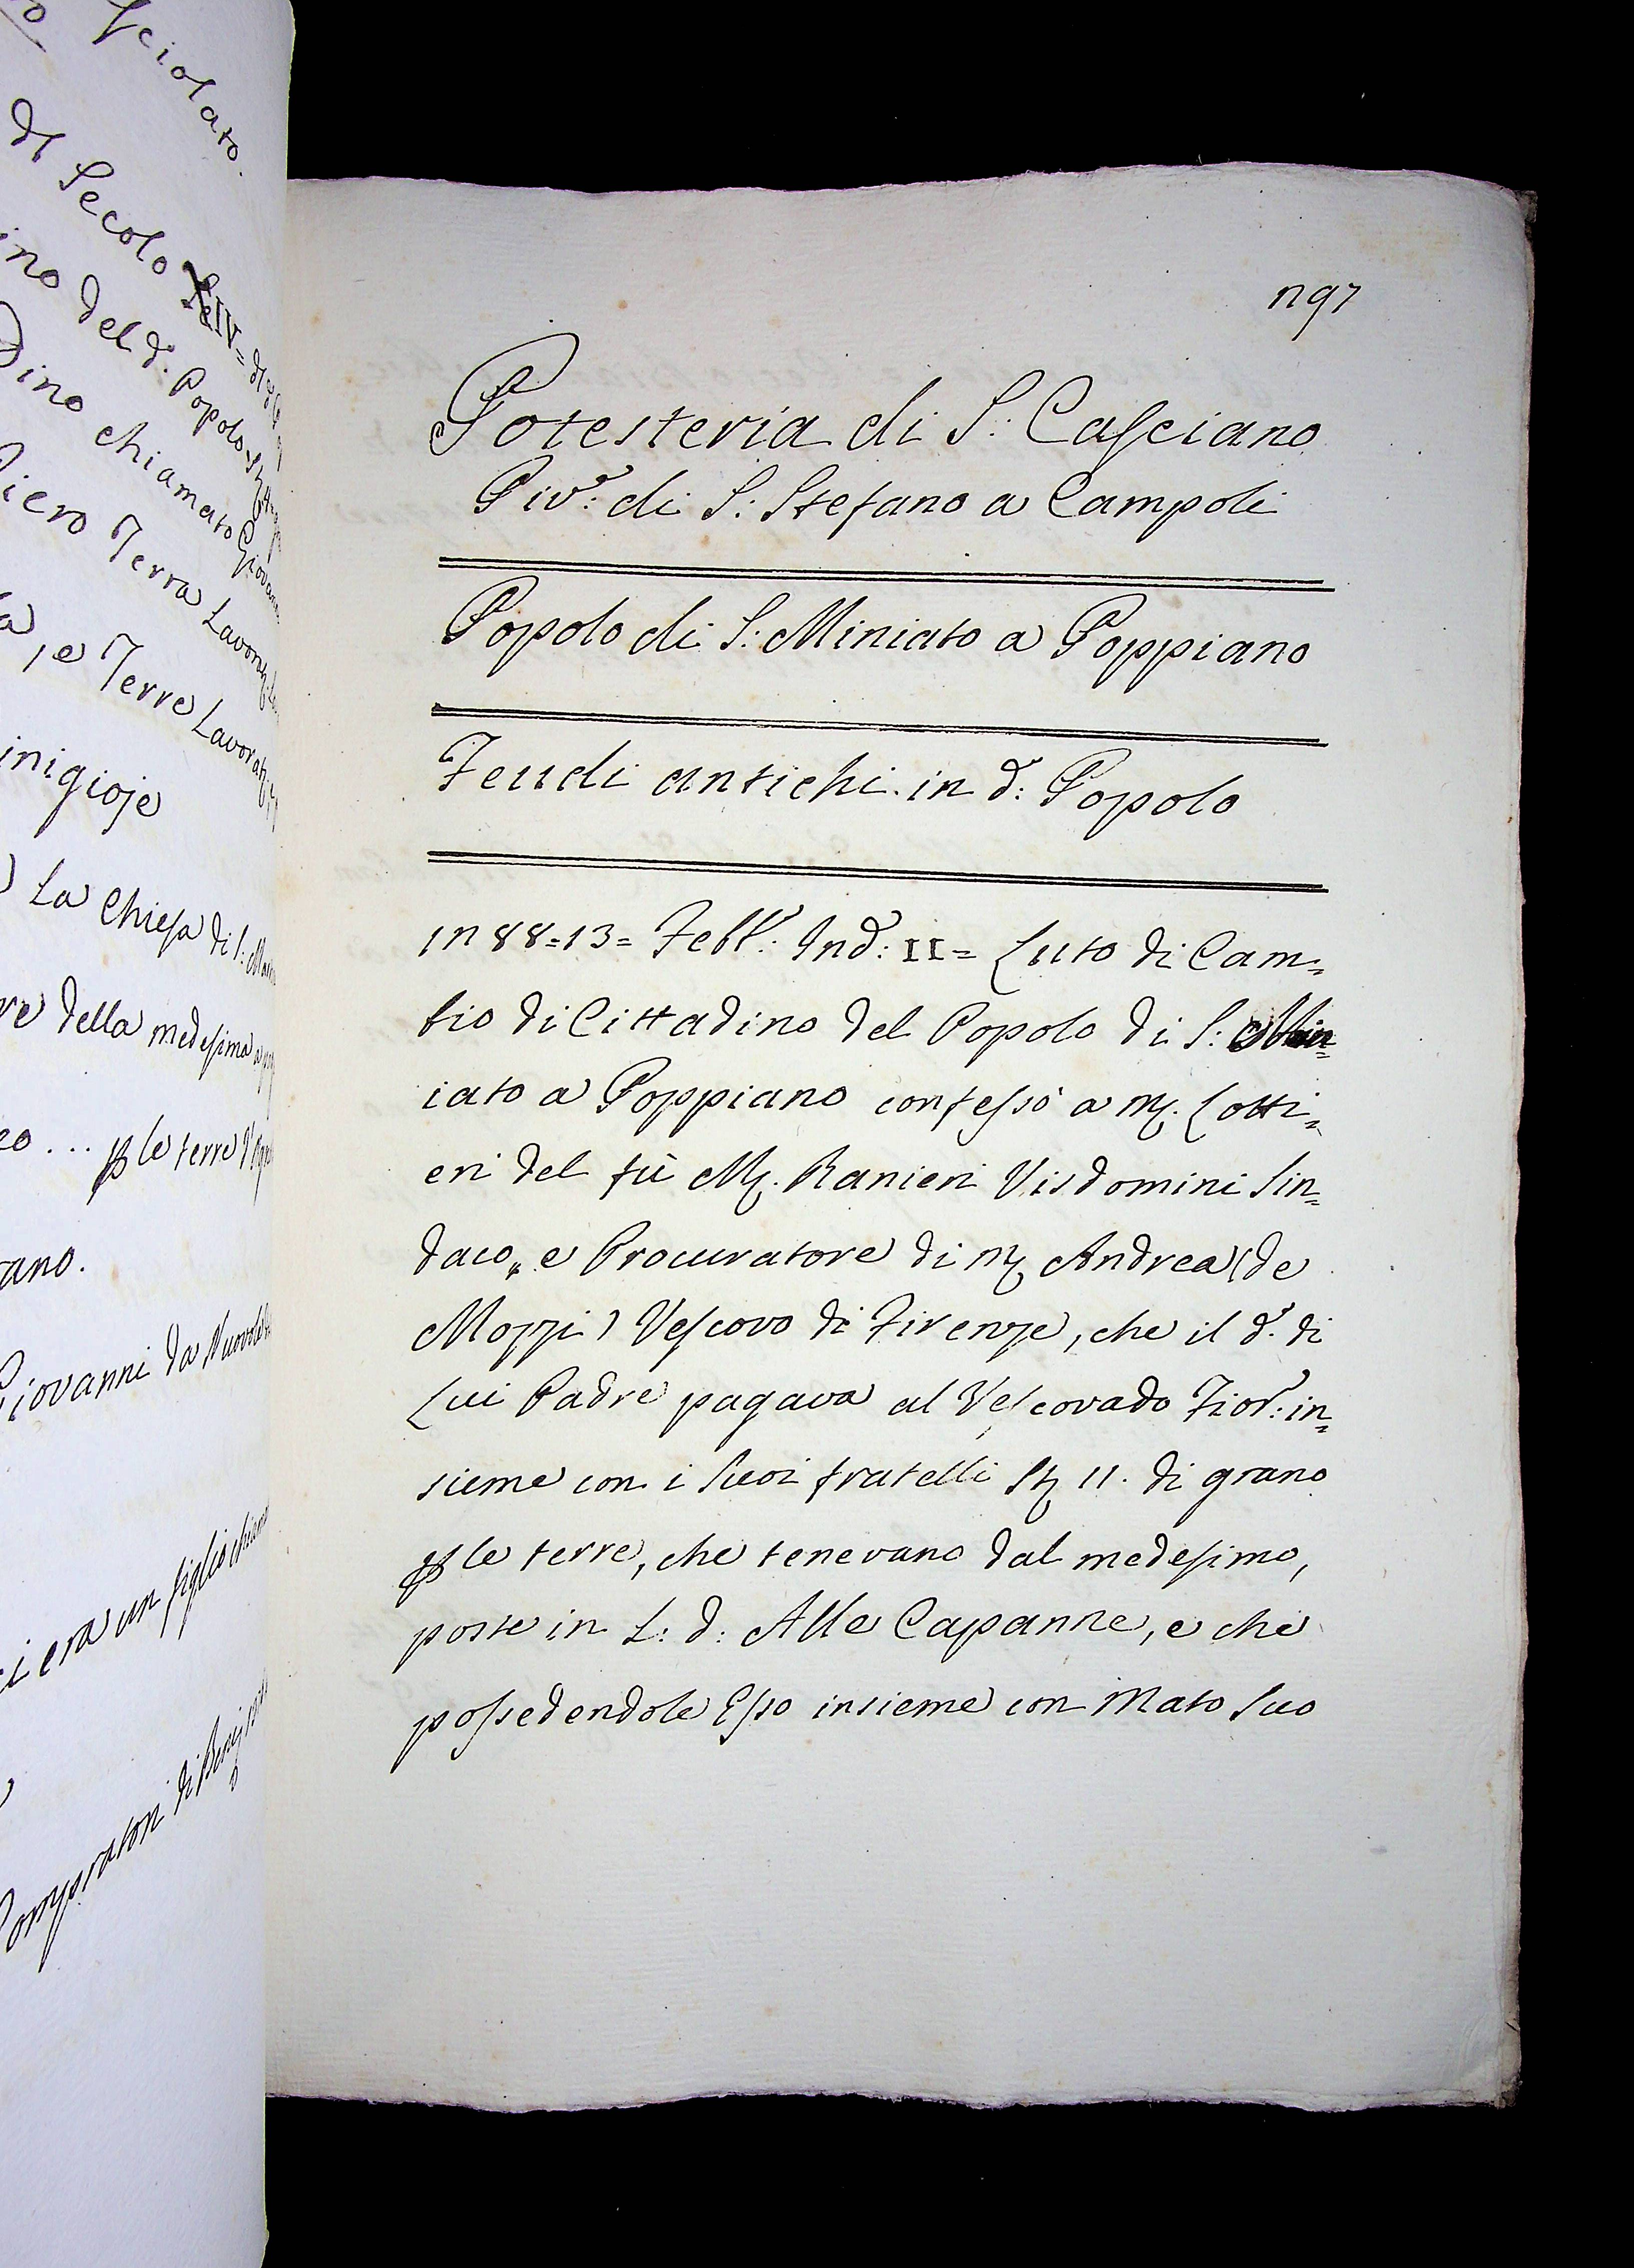 sciolato.
di Secolo XIV= di
ino del d. Popolo
Dino chiamato Giovan
Piero Terra Lavor
a, e Terre Lavorat
inigioje
La Chiesa di S: Mar
re della medesima
eo ... p le terre
rano.
Giovanni da
ci era un figlio chiam
Compratori di
n97
Potesteria di S: Casciano
Piv.e: di S: Stefano a Campoli
Popolo di S: Miniato a Poppiano
Feudi antichi in d: Popolo
1n88=13= Febb.: Ind: II= Luto di Cam=
bio di Cittadino del Popolo di S: Min=
iato a Poppiano confessò a M. Lotti=
eri del fù M. Ranieri Visdomini Sin=
daco, e Procuratore di M Andrea (de
Mozzi) Vescovo di Firenze, che il d. di
Lui Padre pagava al Vescovado Fior: in=
sieme con i Suoi fratelli St 11. di grano
p le terre, che tenevano dal medesimo,
poste in L: d: Alle Capanne, e che
possedendole Esso insieme con Mato Suo